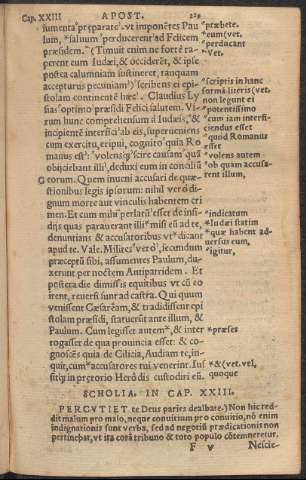 Cap. XXIII APOST. 229
iumenta præparate, vt imponẽtes Pau
lum, saluum perducerent ad Felicem
præsidem. (Timuit enim ne forte ra-
perent eum Iudæi, & occiderẽt, & ipse
postea calumniam sustineret, tanquam
accepturus pecuniam) scribens ei epi-
stolam continentẽ hæc. Claudius Ly
sias optimo præsidi Felici salutem. Vi-
rum hunc comprehensum à Iudæis, &
incipientẽ interfici ab eis, superueniens
cum exercitu, eripui, cognito quia Ro
manus est: volensq; scire causam quã
obijciebant illi, deduxi eum in conciliũ
C eorum. Quem inueni accusari de quæ-
stionibus legis ipsorum: nihil verò di-
gnum morte aut vinculis habentem cri
men. Et cum mihi perlatũ esset de insi-
dijs quas parauerant illi misi eũ ad te,
denuntians & accusatoribus vt dicant
apud te. Vale. Milites verò, secundum
præceptũ sibi, assumentes Paulum, du-
xerunt per noctem Antipatridem. Et
postera die dimissis equitibus vt cũ eo
irent, reuersi sunt ad castra. Qui quum
venissent Cæsaream, & tradidissent epi
stolam præsidi, statuerũt ante illum, &
Paulum. Cum legisset autem, & inter
rogasset de qua prouincia esset: & co-
gnoscẽs quia de Cilicia, Audiam te, in-
quit, cum accusatores tui venerint. Ius
sitq; in prętorio Herodis custodiri eũ.
præbete.
eum (vet.
perducant
Vet.
scriptis in hanc
formã literis (vet.
non legunt ei
potentissimo
cum iam interfi-
ciendus esset
quid Romanus
esset
volens autem
ob quam accusa-
rent illum,
indicatum
Iudæi statim
quæ habent ad-
uersus eum,
igitur,
præses
& (vet. vel,
quoque
SCHOLIA. IN CAP. XXIII.
PERCVTIET te Deus paries dealbate.) Non hic red
dit malum pro malo, neque conuitium pro conuitio, nõ enim
indignationis sunt verba, sed ad negotiũ prædicationis non
pertinebat, vt ita corã tribuno & toto populo cõtemneretur.
F v Nescie-